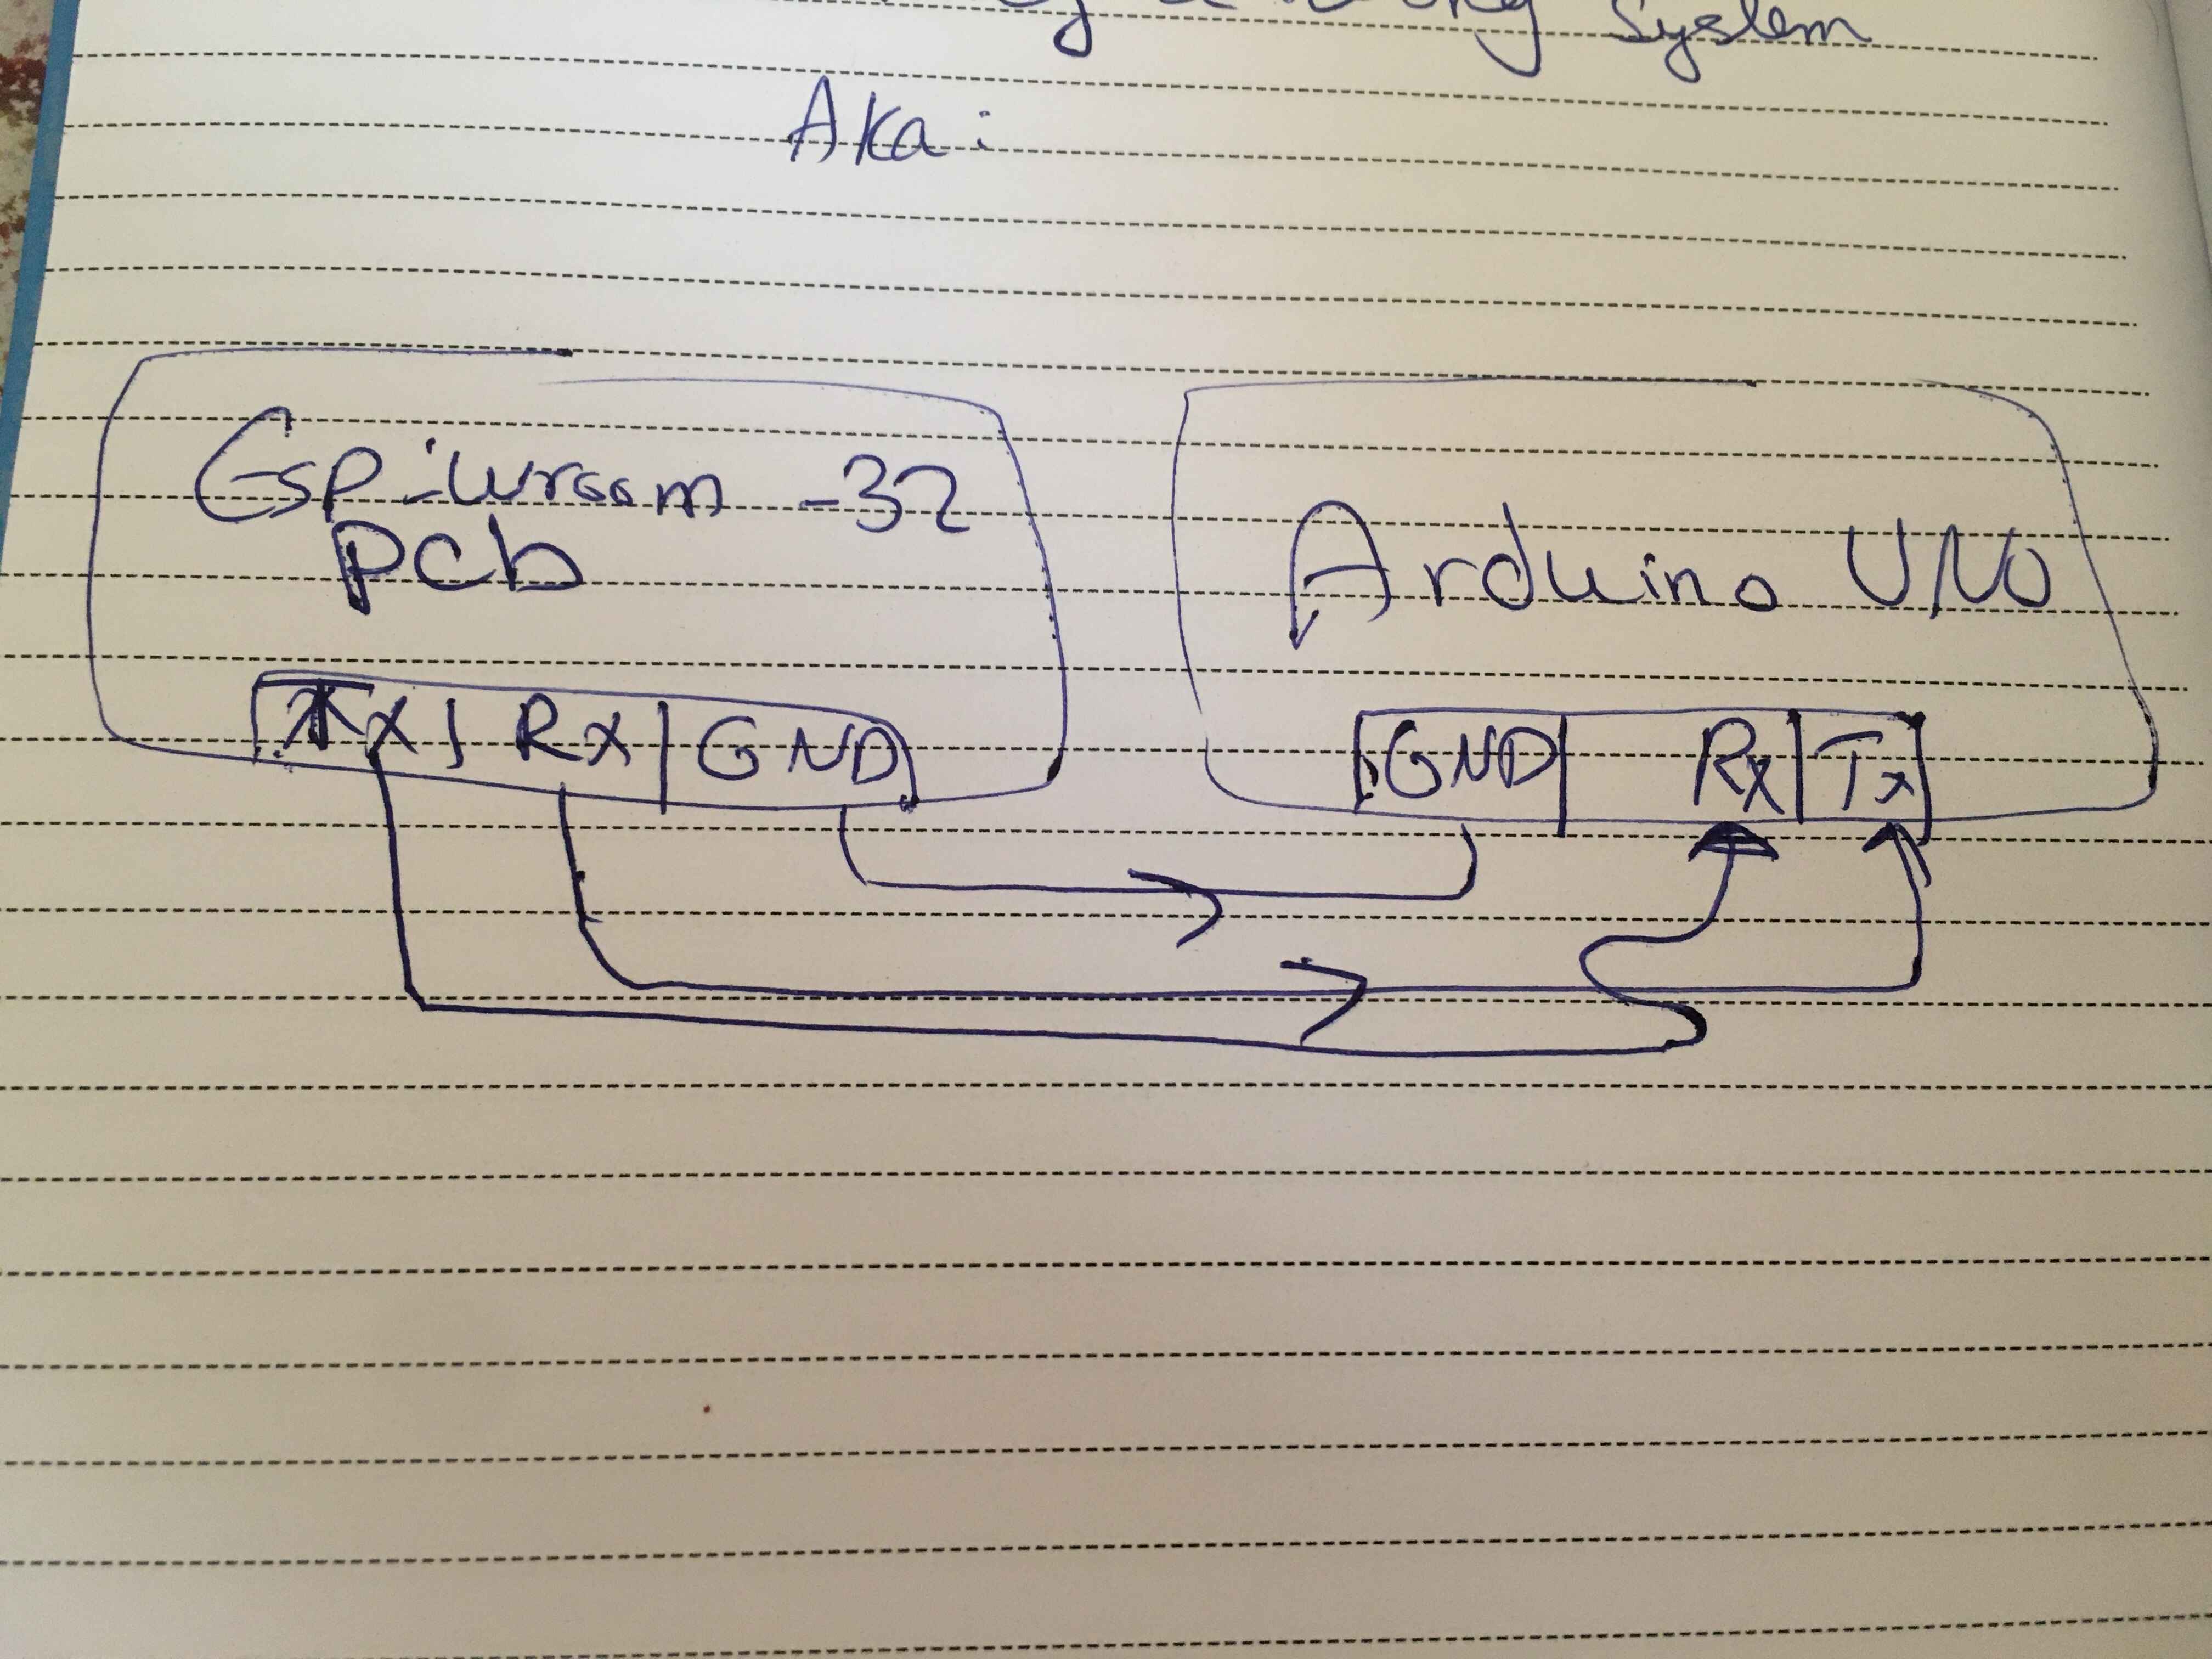 System
Aka:
Esp-wroom -32
pcb
Arduino UNO
Tx | Rx | GND
GND | Rx | Tx